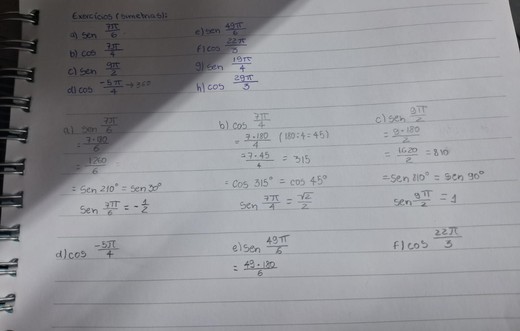 Exercícios (simetrias):
a) sen 7π/6
b) cos 7π/4
c) sen 9π/2
d) cos -5π/4
e) sen 49π/6
f) cos 22π/3
g) sen 19π/4
h) cos 29π/3
a) sen 7π/6
= 7·180/6
= 1260/6
= sen 210° = sen 30°
sen 7π/6 = -1/2
b) cos 7π/4
= 7·180/4 (180÷4=45)
= 7·45/4 = 315
= cos 315° = cos 45°
sen 7π/4 = √2/2
c) sen 9π/2
= 9·180/2
= 1620/2 = 810
= sen 810° = sen 90°
sen 9π/2 = 1
d) cos -5π/4
e) sen 49π/6
= 49·180/6
f) cos 22π/3